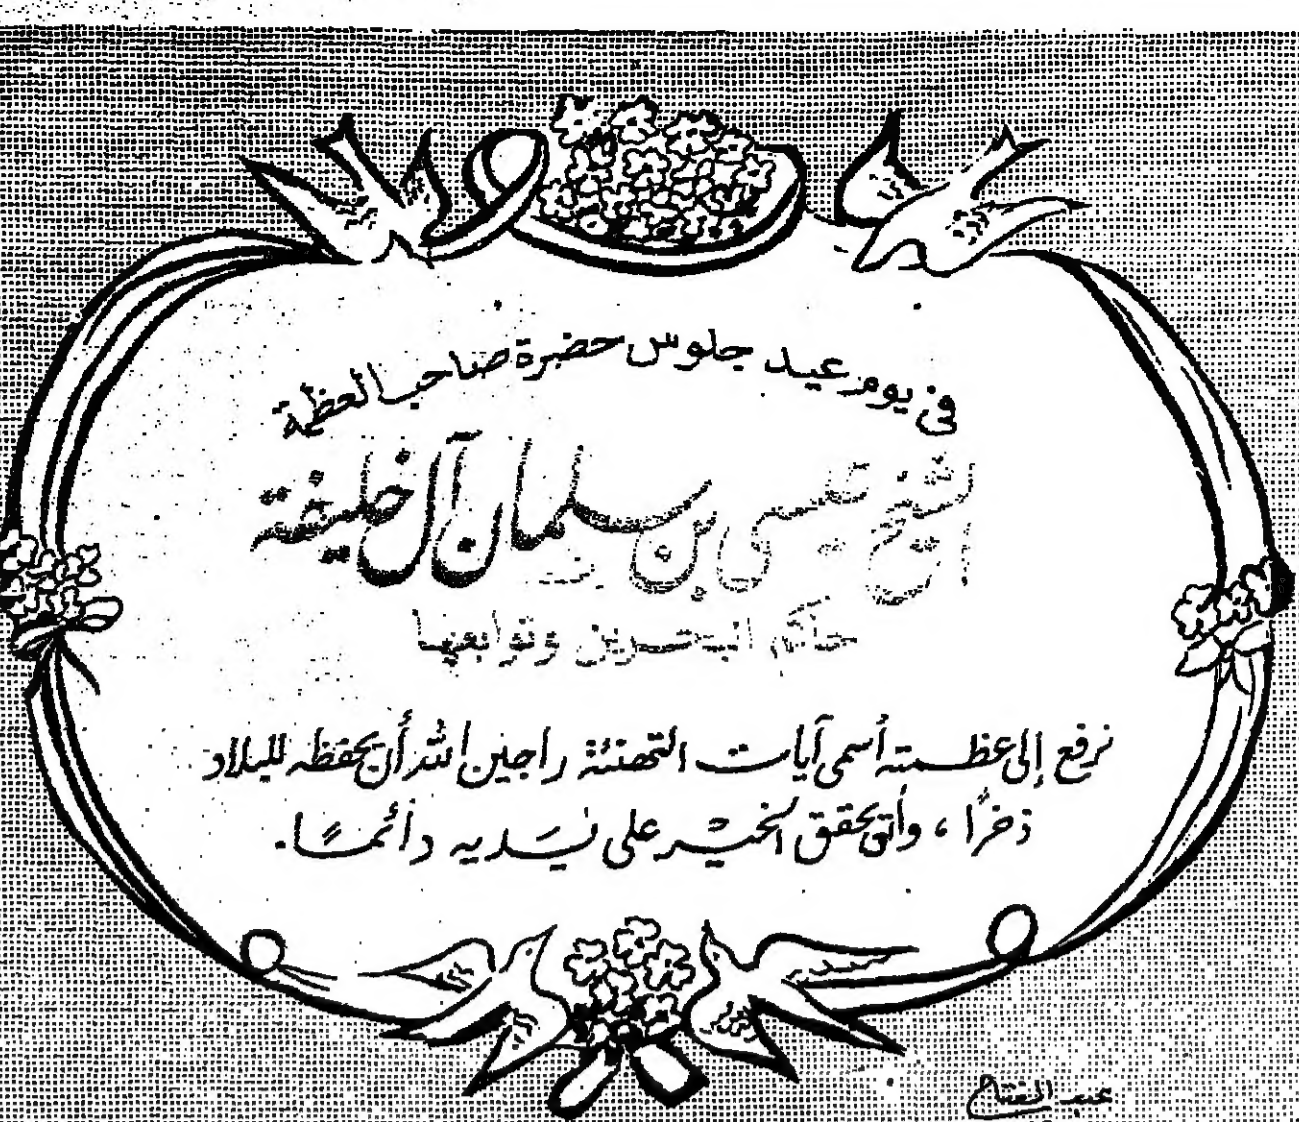 في يوم عيد جلوس حضرة صاحب العظمة
الشيخ عيسى بن سلمان آل خليفة
حاكم البحرين وتوابعها
نرفع إلى عظمته أسمى آيات التهنئة راجين الله أن يحفظه للبلاد
ذخرًا ، وأن يحقق الخير على يديه دائمًا .
عبد الفتاح